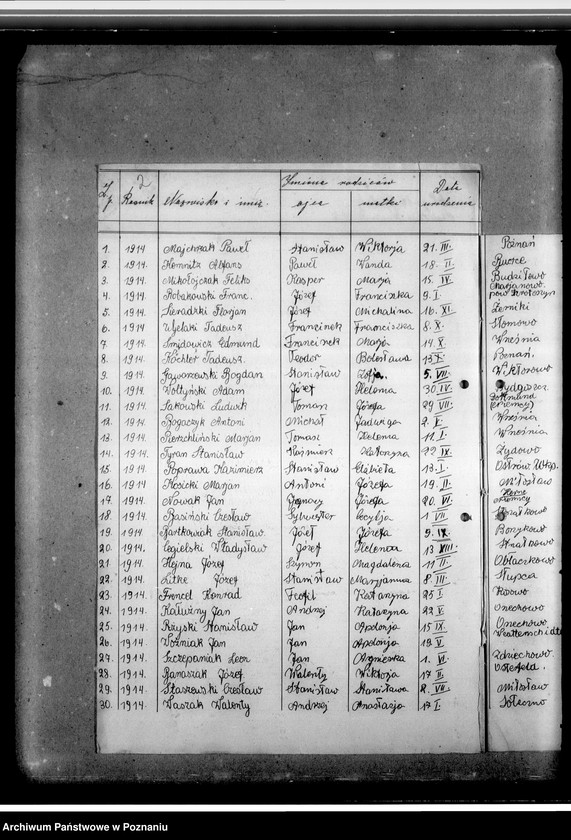 2
L.p. Rocznik Nazwisko i imię Imiona rodziców Data urodzenia
ojca matki
1. 1914 Majchrzak Paweł Stanisław Wiktorja 21. III. Poznań
2. 1914. Kemnitz Alfons Paweł Wanda 18. II.
3. 1914 Mikołajczak Feliks Kasper Marja 15. IV. Budziłowo
4. 1914. Robakowski Franc. Józef Franciszka 9. I. Marjanowo pow. Krotoszyn
5. 1914 Sieradzki Florjan Józef Michalina 16. XI. Żerniki
6. 1914 Tadeusz Franciszek Franciszka 8. X. Słomowo
7 1914 Edmund Franciszek Marja 14. X Września
8. 1914 Köchler Tadeusz. Teodor Bolesława 13 X Poznań.
9. 1914. Gaworzewski Bogdan Stanisław Zofja. 5. VII. Wiktorowo
10. 1914. Wołtyński Adam Józef Helena 30 IV.
11. 1914 Sakowski Ludwik Tomasz Józefa 29 VII. Dortmund (Niemcy)
12. 1914 Rogaczyk Antoni Michał Jadwiga 2. Września
13. 1914 Marjan Tomasz Helena 11. I. Września
14. 1914. Stanisław Kaźmierz Katarzyna IX. Żydowo
15. 1914. Poprawa Kazimierz Stanisław Elżbieta 13. I. Ostrów Wlkp.
16. 1914 Kosicki Marjan Antoni Józefa 19. II. Miłosław
17. 1914 Nowak Jan Ignacy Józefa 20. VI. Niemcy
18. 1914. Basiński Czesław Sylwester Cecylja 1. VII Strzałkowo
19. 1914. Bartkowiak Stanisław Józef Józefa 9. IX. Borzykowo
20. 1914. Cegielski Władysław Józef Helena 13 VIII. Strzałkowo
21 1914. Hejna Józef Szymon Magdalena 11 II Obłaczkowo
22. 1914. Litke Józef Stanisław Marjanna 8. III. Słupca
23. 1914 Frencel Konrad Teofil Katarzyna 25 I
24. 1914. Kałużny Jan Andrzej Katarzyna 22 V.
25. 1914 Rzyski Stanisław Jan Apolonja 15 IX.
26. 1914. Woźniak Jan Jan Apolonja 19 V
27. 1914. Szczepaniak Leon Jan Agnieszka 1. VI. Zdziechowo
28. 1914 Banaszak Józef Walenty Wiktorja 17 II.
29. 1914. Staszewski Czesław Stanisław Stanisława 2. VII. Miłosław
30. 1914. Waszak Walenty Andrzej Anastazja 17 I. Sołeczno
Archiwum Państwowe w Poznaniu